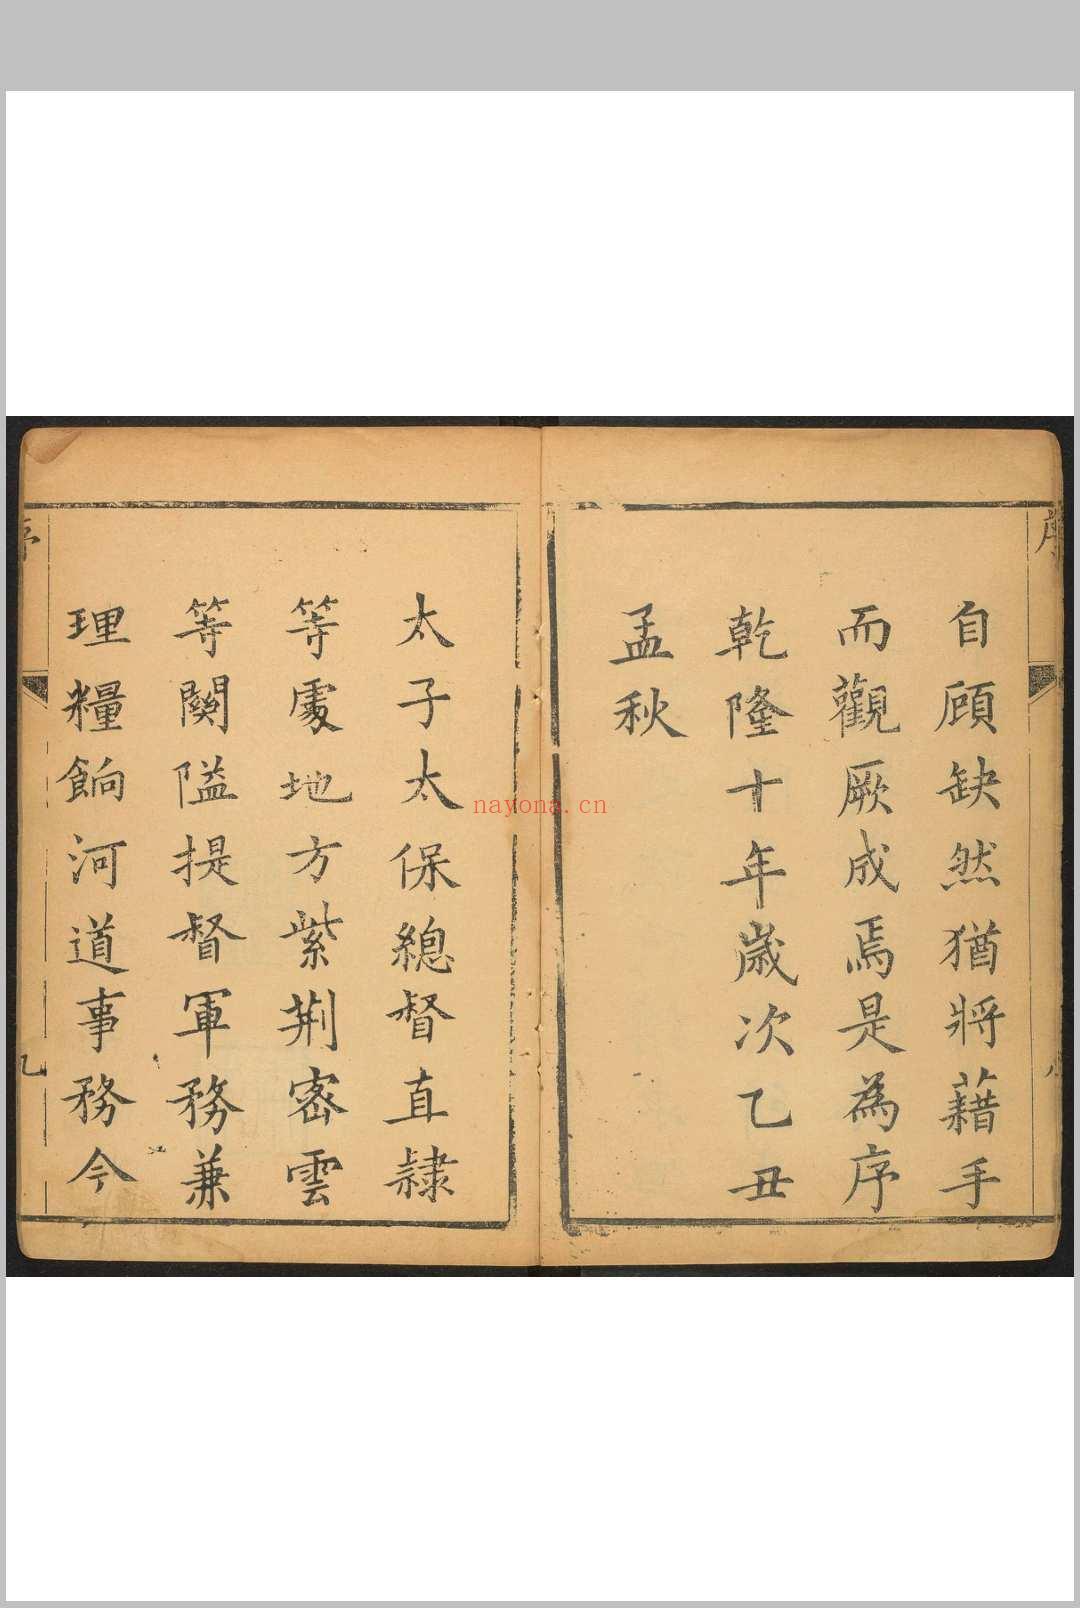 自顧缺然猶將藉手
而觀厥成焉是為序
乾隆十年歲次乙丑
孟秋
太子太保總督直隸
等處地方紫荆密雲
等關隘提督軍務兼
理糧餉河道事務今
序
序
八
九
nayona.cn